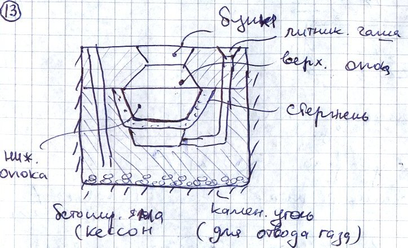 13
литник. чаша
верх. опока
стержень
ниж.
опока
бетонир. яма
(кессон
камен. уголь
(для отвода газа)